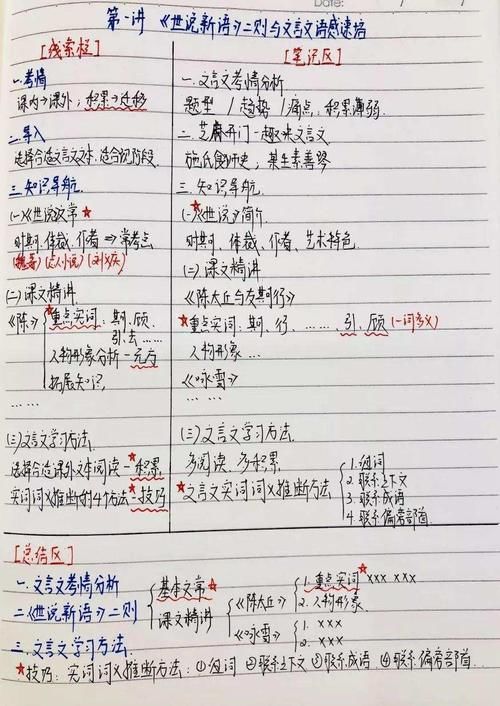 Date: / /
第一讲 《世说新语》二则与文言文语感速培
[线索栏]
一.考情
课内→课外; 积累→迁移
二.导入
选择合适文言文文本,适合现阶段.
三.知识导航.
(一)《世说》文常★
时期、体裁、作者 ⇒ 常考点
(魏晋)(志人小说)(刘义庆)
(二)课文精讲
《陈》
★重点实词: 期、顾、
引、去…
人物形象分析-元方
拓展知识.
… …
(三)文言文学习方法.
选择合适课外文本阅读-积累
实词词义推断的4个方法-技巧
[笔记区]
一.文言文考情分析
题型 / 趋势 / 痛点: 积累薄弱.
二.芝麻开门-趣味文言文
施氏食狮史, 某生素善睡
三.知识导航
(一)《世说》简介.★
时期、体裁、作者、艺术特色.
(二)课文精讲
《陈太丘与友期行》
★重点实词: 期、行、……、引、顾(一词多义)
人物形象…
《咏雪》
… …
(三)文言文学习方法.
多阅读、多积累.
★文言文实词词义推断方法
1.组词
2.联系上下文
3.联系成语
4.联系偏旁部首.
[总结区]
一.文言文考情分析
二.《世说新语》二则
基本文常★
课文精讲
《陈太丘》
1.重点实词★xxx xxx
2.人物形象.
《咏雪》
1. xxx
2. xxx
三.文言文学习方法.
★技巧: 实词词义推断方法: ①组词 ②联系上下文 ③联系成语 ④联系偏旁部首.